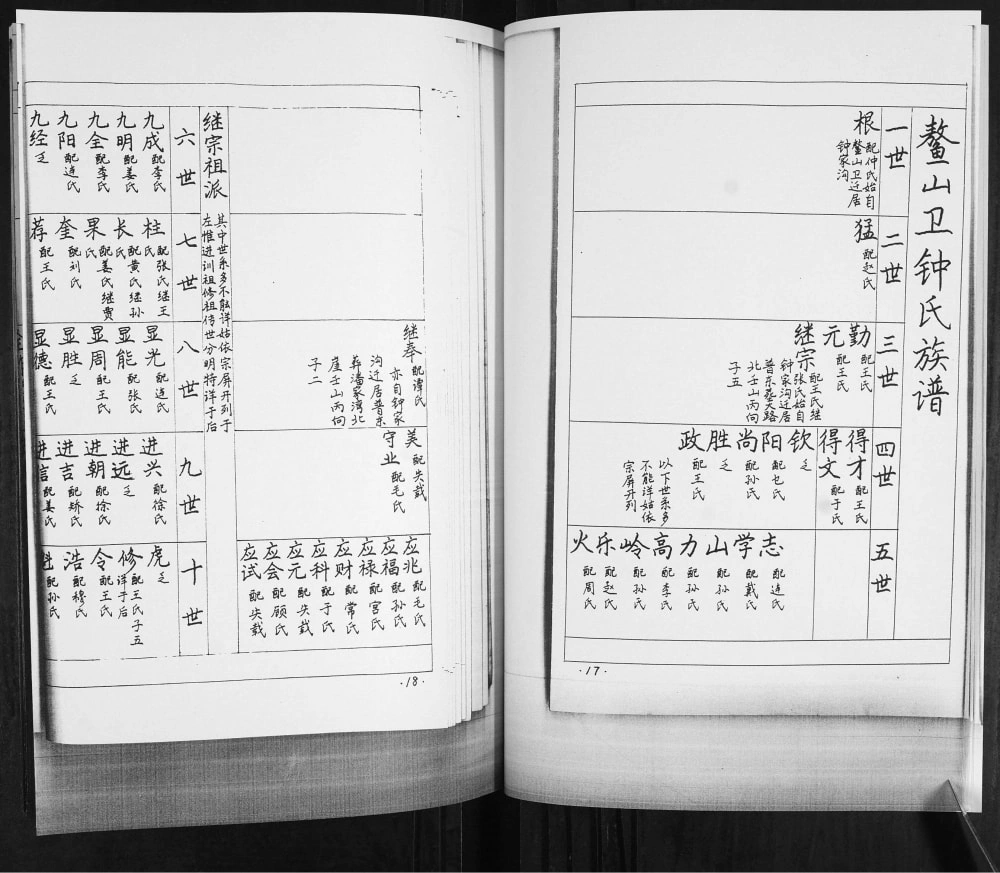 鳌山卫钟氏族谱
一世
根 配仲氏始自
鳌山卫迁居
钟家沟
二世
猛 配赵氏
三世
勤 配王氏
元 配王氏
继宗 配王氏继
张氏始自
钟家沟迁居
普东葬大路
北壬山丙向
子五
四世
得才 配王氏
得文 配于氏
钦 乏
阳 配乜氏
尚 配孙氏
胜 乏
政 配王氏
以下世系多
不能详姑依
宗屏开列
五世
志 配连氏
学 配戴氏
山 配孙氏
力 配孙氏
高 配李氏
岭 配孙氏
乐 配赵氏
火 配周氏
·17·
继奉 配谭氏
亦自钟家
沟迁居普东
葬潘家湾北
崖壬山丙向
子二
美 配失载
守业 配毛氏
应兆 配毛氏
应福 配孙氏
应禄 配宫氏
应财 配常氏
应科 配于氏
应元 配失载
应会 配顾氏
应试 配失载
继宗祖派
其中世系多不能详姑依宗屏开列于
左惟进训祖修祖传世分明特详于后
六世
九成 配李氏
九明 配姜氏
九全 配李氏
九阳 配连氏
九经 乏
七世
柱 配张氏继王
氏
长 配黄氏继孙
氏
果 配姜氏继贾
氏
奎 配刘氏
荐 配王氏
八世
显光 配连氏
显能 配张氏
显周 配王氏
显胜 乏
显德 配王氏
九世
进兴 配徐氏
进远 乏
进朝 配徐氏
进吉 配矫氏
进信 配姜氏
十世
虎 乏
修 配王氏子五
详于后
令 配王氏
浩 配穆氏
配孙氏
·18·